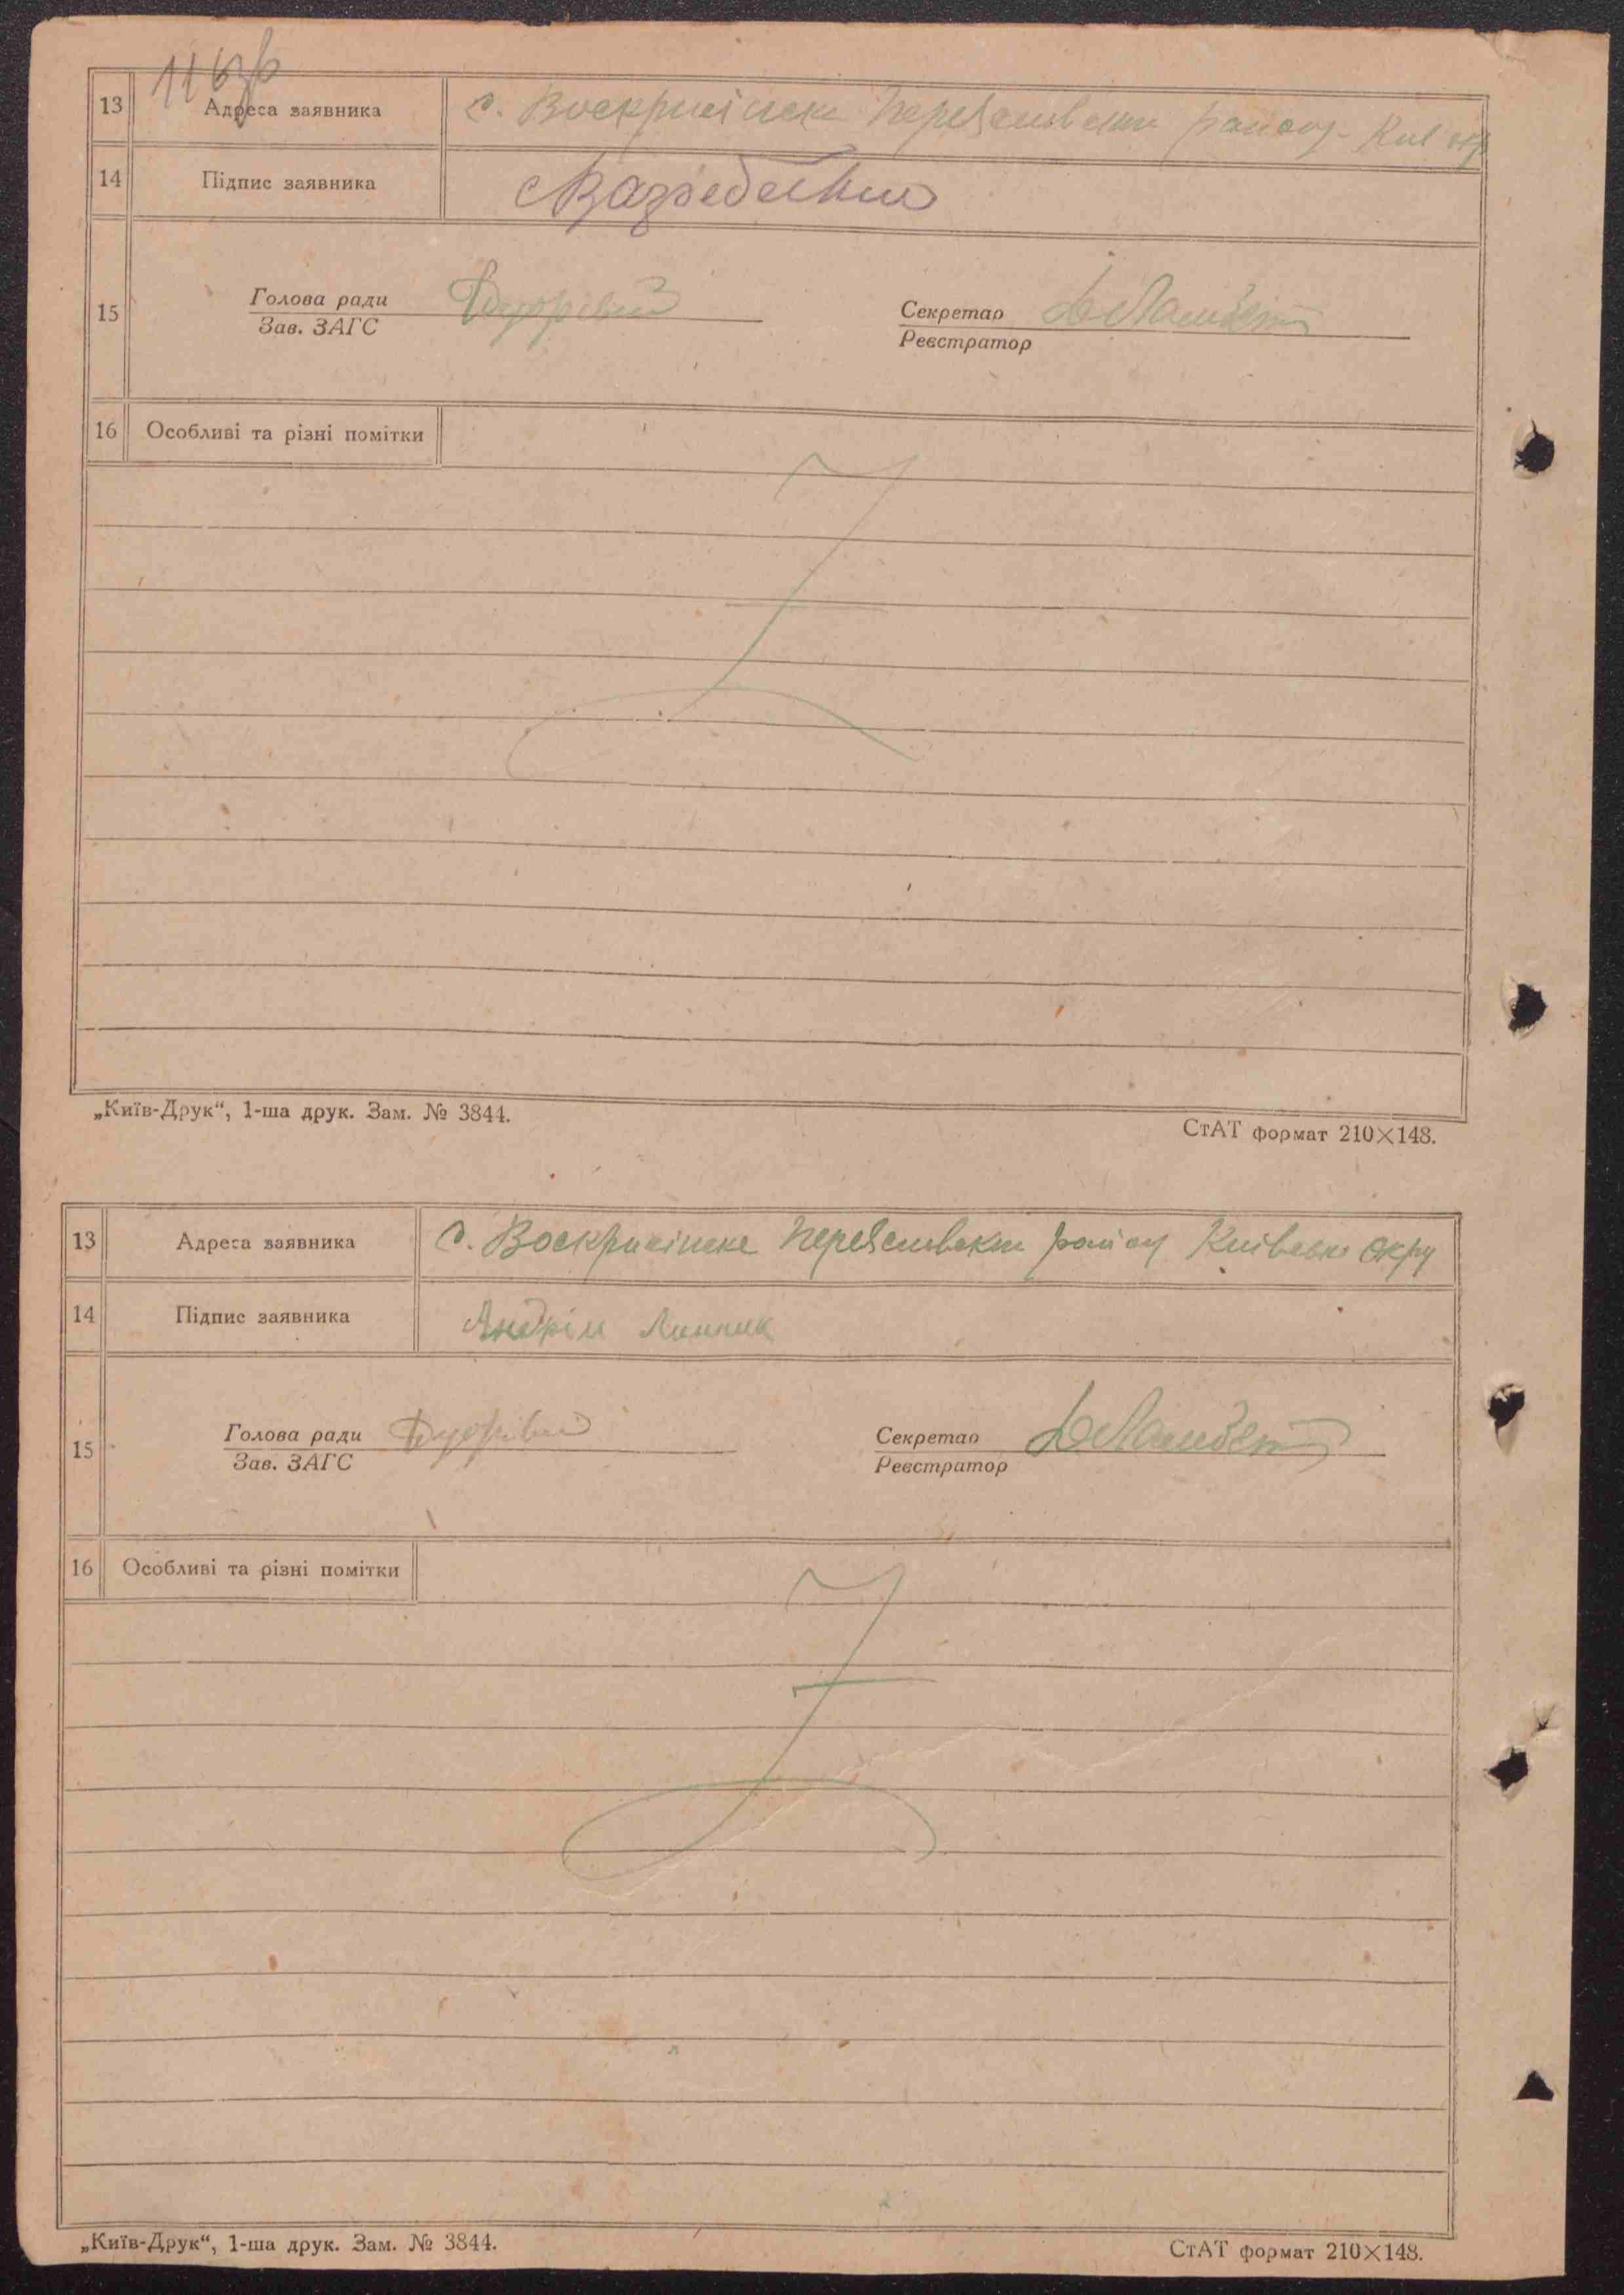 116зв
13 Адреса заявника с. Воскрисінске Переяславськи району Київ окр
14 Підпис заявника
15 Голова ради Секретар
Зав. ЗАГС Реєстратор
16 Особливі та різні помітки
„Київ-Друк“, 1-ша друк. Зам. № 3844. СтАТ формат 210×148.
13 Адреса заявника с. Воскрисінске Переяславськи району Київсько окру
14 Підпис заявника Андрій Линник
15 Голова ради Секретар
Зав. ЗАГС Реєстратор
16 Особливі та різні помітки
„Київ-Друк“, 1-ша друк. Зам. № 3844. СтАТ формат 210×148.